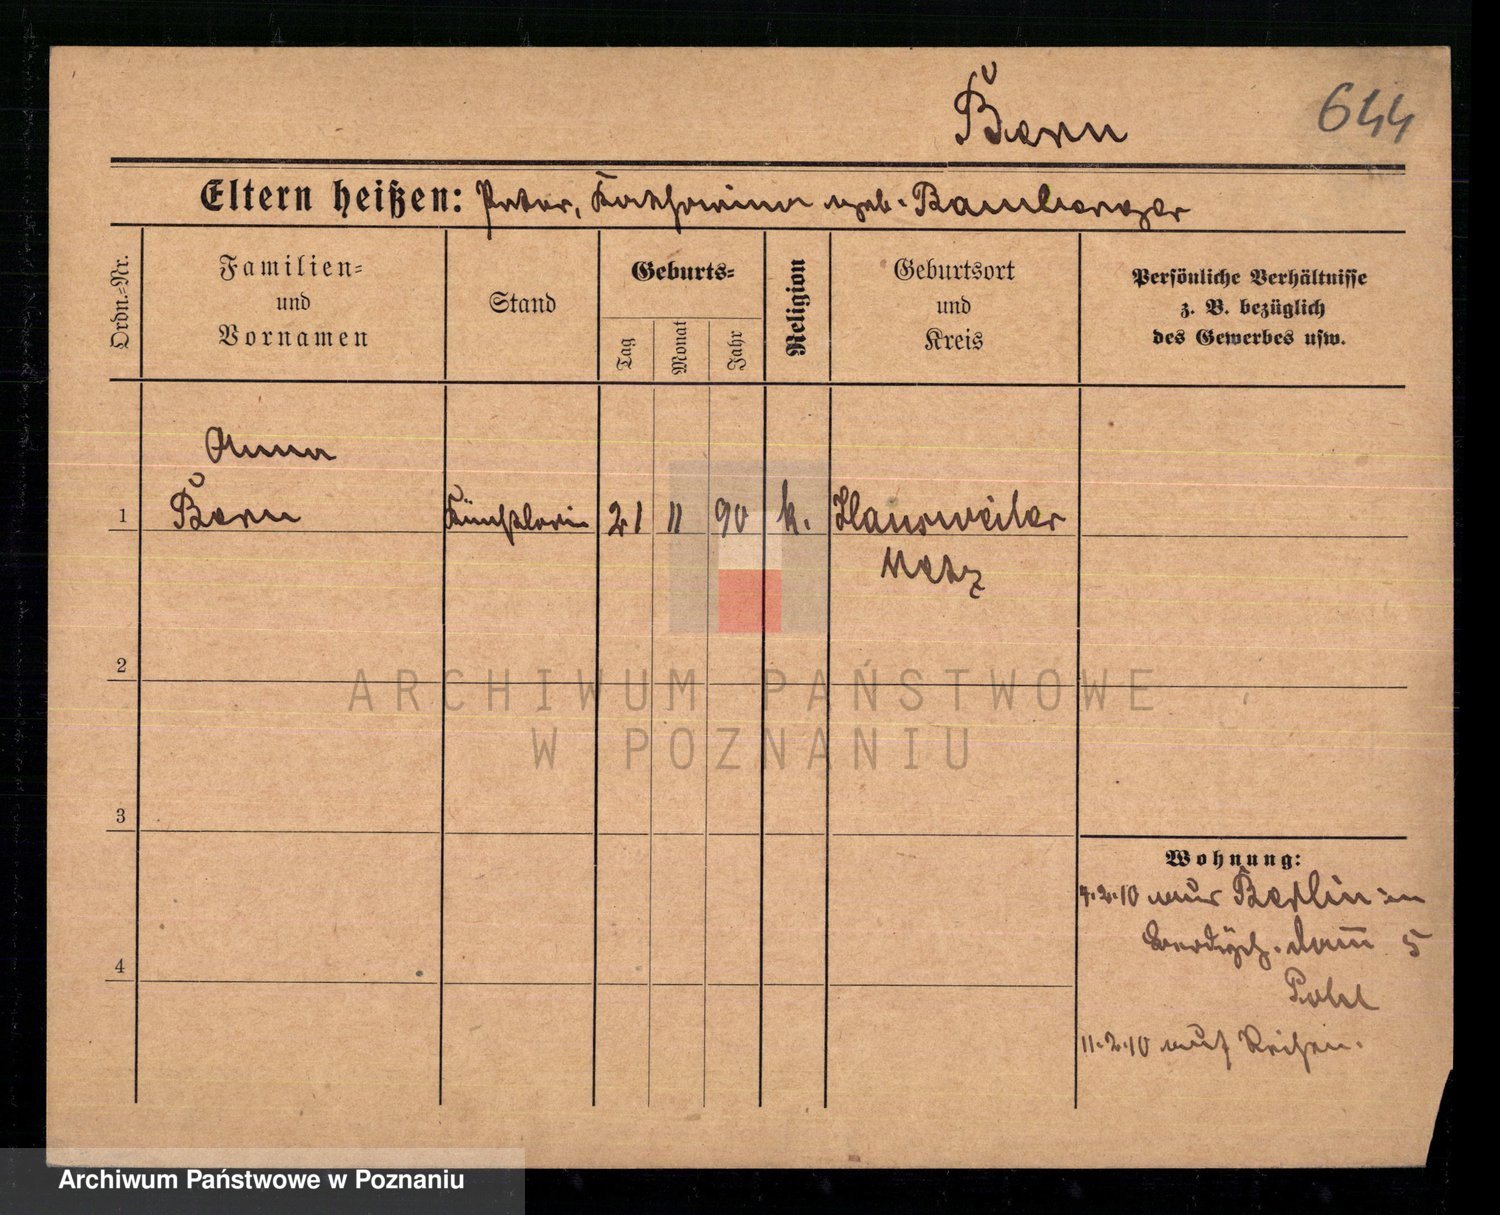 Bern
644
Eltern heißen: Peter, Katharina geb. Bamberger
Ordn.-Nr.
Familien-
und
Vornamen
Stand
Geburts-
Tag
Monat
Jahr
Religion
Geburtsort
und
Kreis
Persönliche Verhältnisse
z. B. bezüglich
des Gewerbes usw.
Anna
1 Bern Künstlerin 21 11 90 k. Hansweiler
Metz
2
3
4
Wohnung:
4.2.10 aus Berlin
5
Pohl
11.2.10 auf Reisen.
ARCHIWUM PAŃSTWOWE
W POZNANIU
Archiwum Państwowe w Poznaniu